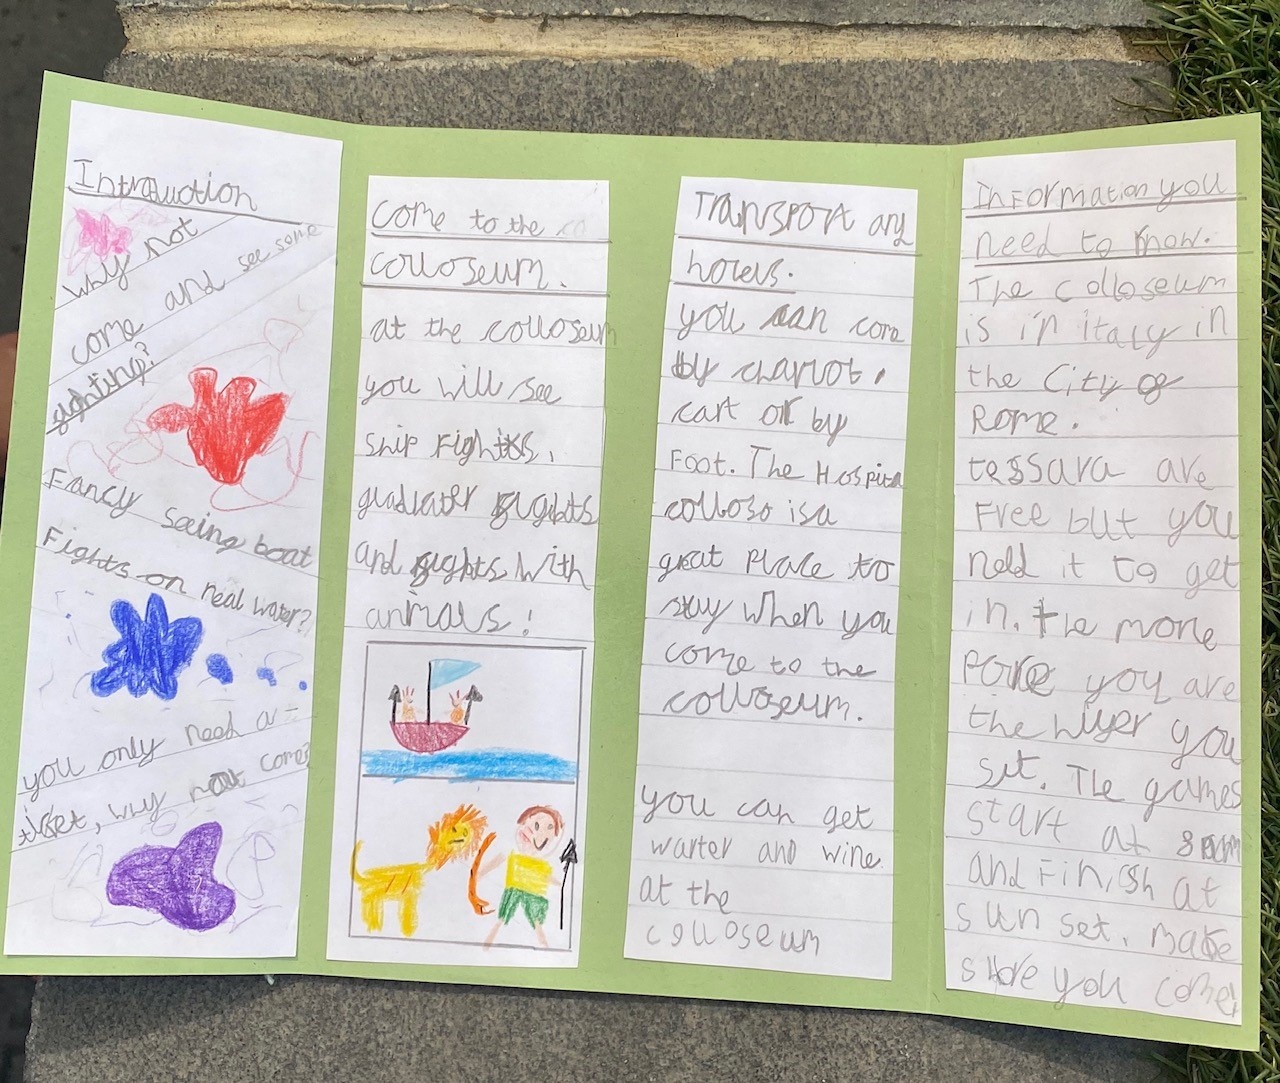 Introuction
why not
come and see some
fighting?
Fancy seeing boat
Fights on real water?
you only need a
ticket, why not come?
come to the co
colloseum.
at the colloseum
you will see
ship fights,
gladiater fights
and fights with
animals!
Transport and
hotels.
you can come
by chariot,
cart or by
Foot. The Hospita
colloso is a
great place to
stay when you
come to the
colloseum.
you can get
warter and wine
at the
colloseum
Information you
need to know.
The colloseum
is in italy in
the City of
Rome.
tessara are
Free but you
need it to get
in. the more
pore you are
the higer you
sit. The games
start at 8am
and Finish at
sun set. make
shore you come!